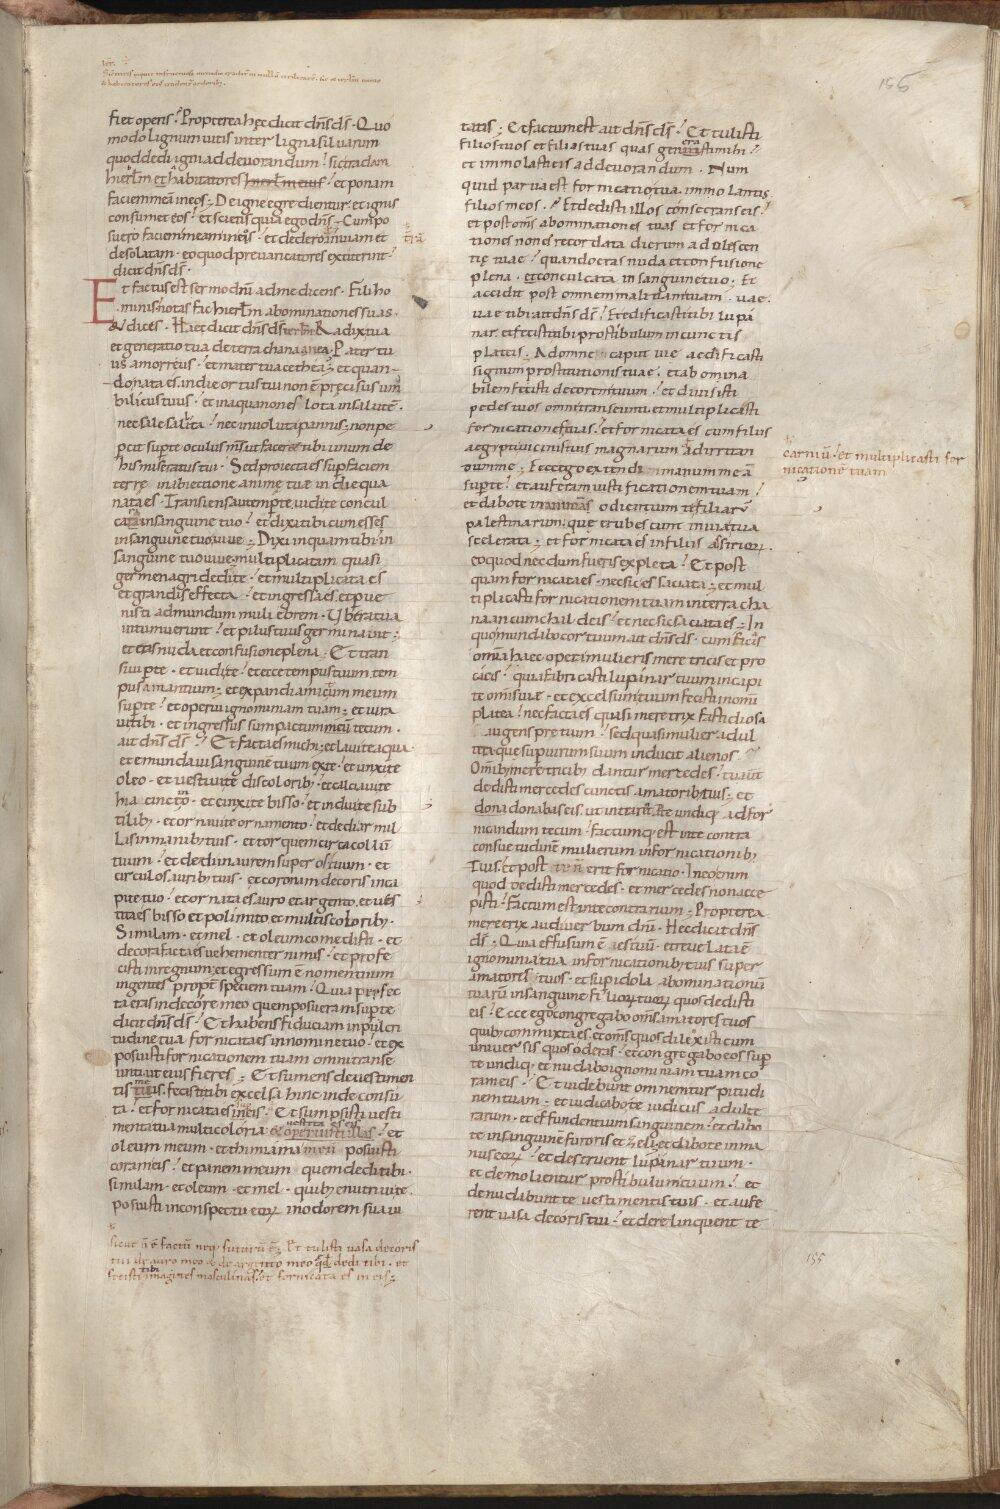 155
fiet operis ; Propterea hęc dicit dn̄s ds̄ . Quo
modo lignum uitis inter ligna siluarum
quod dedi igni ad deuorandum ; sic tradam
hierl̄m et habitatores hierl̄m eius ; et ponam
faciem meā in eos ; De igne egredientur . et ignis
consumet eos ; et scietis quia ego dn̄s ; Cum po
suero faciem meam in eis ; et dedero inuiam et
trā
desolatam . eo quod preuaricatores extiterint ;
dicit dn̄s ds̄ .
Et factus est sermo dn̄i ad me dicens . Fili ho
minis notas fac hierl̄m abominationes suas .
& dices . Haec dicit dn̄s ds̄ hierl̄m Radix tua
et generatio tua de terra chananea . Pater tu
us amorreus ; et mater tua cethea ; et quan
do nata es . in die ortus tui non ē precisus um
bilicus tuus ; et in aqua non es lota in salutē .
nec sale salita ; nec inuoluta pannis ; non pe
pcit sup te oculus m̄s ut facere tibi unum de
his miseratus tui . Sed proiecta es sup faciem
terrę in abiectione animę tuę in die qua
nata es . Transiens autem p te . uidi te concul
cata in sanguine tuo ; et dixi tibi cum esses
in sanguine tuo uiue ; Dixi inquam tibi in
sanguine tuo uiue . multiplicatam quasi
germen agri dedi te ; et multiplicata es
et grandis effecta ; et ingressa es . et pue
nisti ad mundum muliebrem . Ubera tua
intumuerunt ; et pilus tuus germinauit ;
et eras nuda et confusione plena ; Et tran
siui p te . et uidi te ; et ecce tempus tuum . tem
pus amantium ; et expandi amictum meum
sup te ; et operui ignominiam tuam ; et iura
ui tibi . et ingressus sum pactum meū tecum .
ait dn̄s ds̄ ; Et facta es michi ; et laui te aqua .
et emundaui sanguinē tuum ex te ; et unxi te
oleo . et uestiui te discolorib; et calciaui te
hiacincto . et cinxi te bisso ; et indui te sub
tilib; et ornaui te ornamento ; et dedi ar mil
las in manib; tuis . et torquem circa collū
tuum ; et dedi inaurem super os tuum . et
circulos aurib; tuis . et coronam decoris in ca
pite tuo ; et ornata es auro et argento . et ues
tita es bisso et polimito et multis colorib; .
Similam . et mel . et oleum comedisti . et
decora facta es uehementer nimis ; et profe
cisti in regnum . et egressum ē nomen tuum
in gentes propt speciem tuam ; Quia perfec
ta eras in decore meo quem posueram sup te
dicit dn̄s ds̄ ; Et habens fiduciam in pulcri
tudine tua fornicata es in nomine tuo ; et ex
posuisti fornicationem tuam omni transe
unti . ut eius fieres ; Et sumens de uestimen
tis tuis . fecisti tibi excelsa hinc inde consu
ta ; et fornicata es in eis . Et sumpsisti uesti
menta tua multicoloria . et operuisti illas ; et
uestita es eis
oleum meum . et thimiama meū posuisti
coram eis ; et panem meum quem dedi tibi .
similam . et oleum . et mel . quib; enutriui te .
posuisti in conspectu eoꝝ in odorem suaui
sicut n̄ ē factū neq; futurū ē ; Et tulisti uasa decoris
tui de auro meo & de argēto meo qd̄ dedi tibi . et
fecisti tibi imagines masculinas . et fornicata es in eis ;
tatis ; Et factum est ait dn̄s ds̄ ; Et tulisti
filios tuos et filias tuas quas generasti mihi ;
et immolasti eis ad deuorandum . Num
quid parua est fornicatio tua . immolantis
filios meos . Et dedisti illos consecrans eis ;
et post om̄s abominationes tuas et fornica
tiones non es recordata dierum adolescen
tię tuae ; quando eras nuda et confusione
plena . et conculcata in sanguine tuo ; Et
accidit post omnem malitiam tuam . uae .
uae tibi ait dn̄s ds̄ ; Et edificasti tibi lupa
nar . et fecisti tibi prostibulum in cunctis
plateis . Ad omne caput uie aedificasti
signum prostitutionis tuae ; et abomina
bilem fecisti decorem tuum ; et diuisisti
pedes tuos omni transeunti . et multiplicasti
fornicationes tuas ; et fornicata es cum filiis
aegypti uicinis tuis magnarum ad irritan
carniū ; et multiplicasti for
nicationē tuam
dum me ; Ecce ego extendi manum meā
sup te ; et auferam iustificationem tuam ;
et dabo te in animas odientium te filiarū
palestinarum . que erubescunt in uia tua
scelerata ; et fornicata es in filiis assirioꝝ .
eo quod necdum fueris expleta ; Et post
quam fornicata es . nec sic es saciata ; et mul
tiplicasti fornicationem tuam in terra cha
naan cum chaldeis ; et nec sic saciata es ; In
quo mundabo cor tuum ait dn̄s ds̄ . cum facis
om̄ia haec opera mulieris meretricis et pro
cacis ; quia fabricasti lupanar tuum in capi
te om̄is uię . et excelsum tuum fecisti in om̄i
platea ; nec facta es quasi meretrix fastidiosa
augens pretium ; sed quasi mulier adul
tera . que sup uirum suum inducit alienos .
Om̄ib; meretricib; dantur mercedes ; tu aūt
dedisti mercedes cunctis amatorib; tuis . et
dona donabas eis . ut intrarent ad te undiq; ad for
nicandum tecum ; Factumq; est in te contra
consuetudinē mulierum in fornicationib;
Tuis . et post te n̄ erit fornicatio . In eo enim
quod dedisti mercedes . et mercedes non acce
pisti ; Factum est in te contrarium ; Propterea
meretrix audi uerbum dn̄i . Hęc dicit dn̄s
ds̄ ; Quia effusum ē aes tuū . et reuelata ē
ignominia tua in fornicationib; tuis super
amatores tuos . et sup idola abominationū
tuarū in sanguine filioꝝ tuoꝝ quos dedisti
eis ; Ecce ego congregabo om̄s amatores tuos
quib; commixta es . et om̄s quos dilexisti cum
uniuersis quos oderas ; et congregabo eos sup
te undiq; et nudabo ignominiam tuam co
ram eis ; Et uidebunt omnem turpitudi
nem tuam ; et iudicabo te iudiciis adulte
rarum . et effundentium sanguinem ; et dabo
te in sanguinē furoris et zeli . et dabo te in ma
nus eoꝝ ; et destruent lupanar tuum .
et demolientur prostibulum tuum ; et
denudabunt te uestimentis tuis . et aufe
rent uasa decoris tui ; et derelinquent te
155